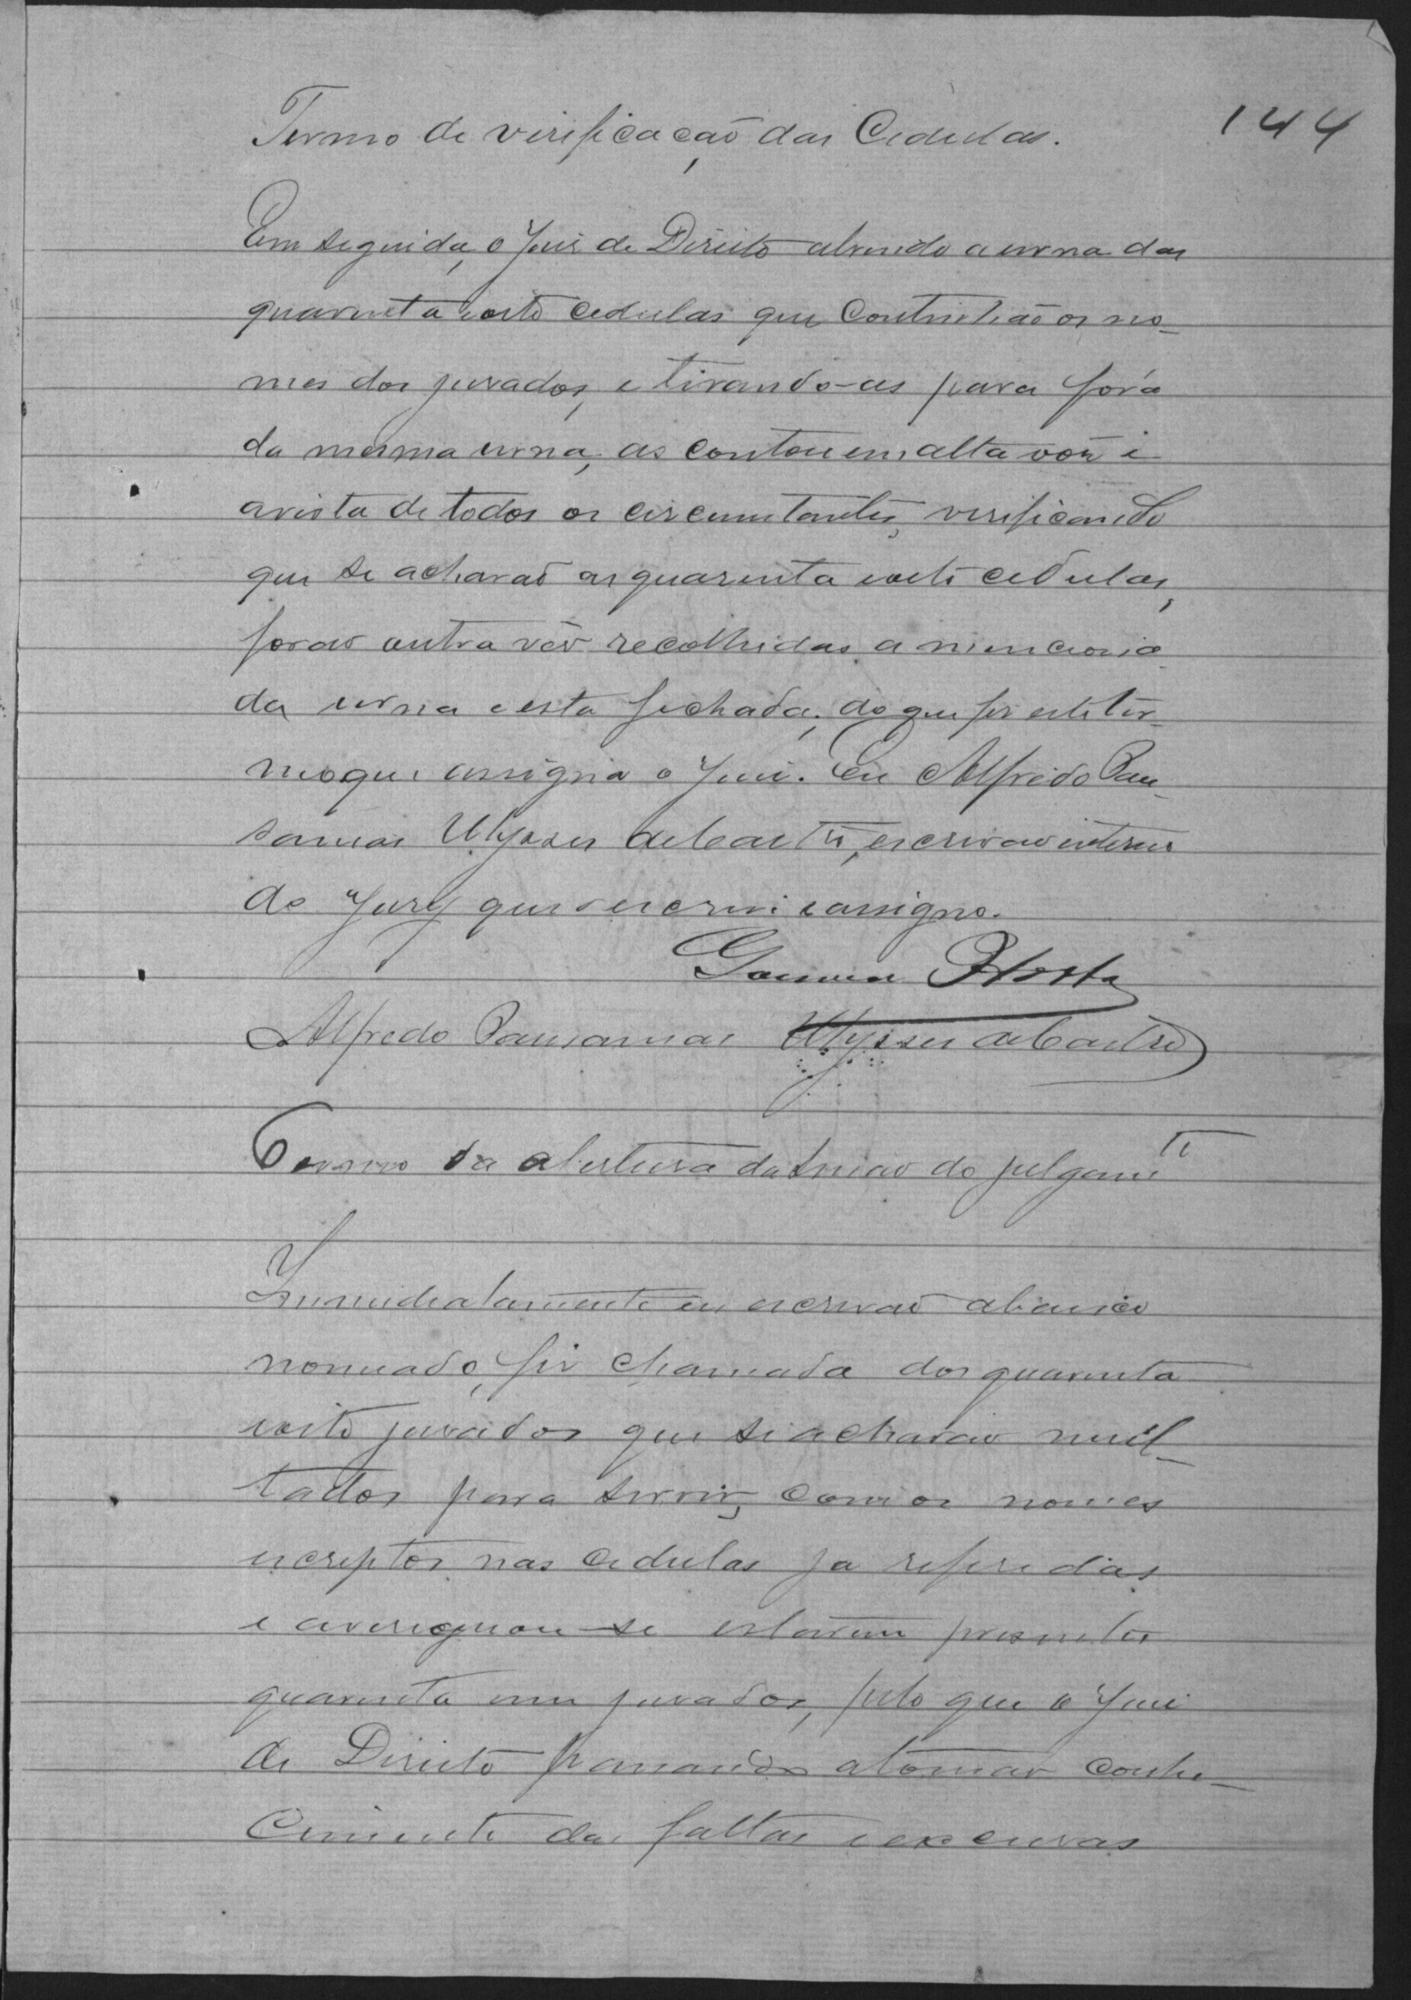 144
Termo de verificação das Cedulas.
Em seguida, o Juiz de Direito abrindo a urna das
quarenta e oito cedulas que continhão os no-
mes dos jurados, e tirando-as para fóra
da mesma urna, as contou em alta voz e
a vista de todos os circumstantes, verificando
que se acharaõ as quarenta e oito cedulas,
forão outra vez recolhidas a menciona-
da urna e esta fechada; do que fiz este ter-
mo que assigna o Juiz. Eu Alfredo Pau-
sanias Ulysses de Castro, escrivão interino
do Jury que o escrevi e assigno.
Alfredo Pausanias Ulysses de Castro
Termo da abertura da sessão do julgamto
Immediatamente eu escrivaõ abaixo
nomeado, fiz chamada dos quarenta
e oito jurados que se acharão
para servir, com os nomes
escriptos nas cedulas ja referidas
e averiguou-se estarem presentes
quarenta um jurados, pelo que o Juiz
de Direito passando a tomar conhe-
cimento das faltas e excusas